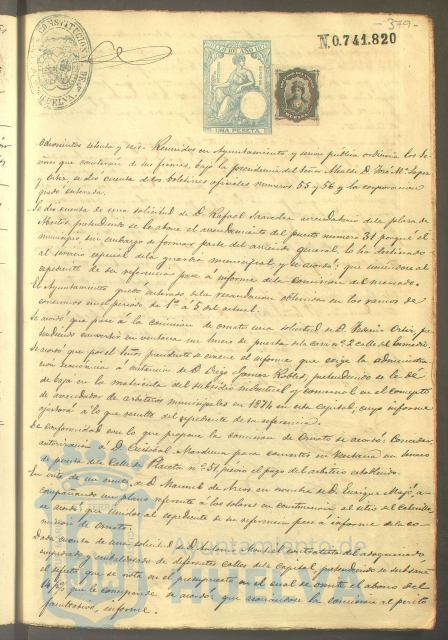 - 379 -
N.0.741.820
CONSTITUCION
HUELVA
UNA PESETA
ochocientos setenta y seis. Reunidos en Ayuntamiento y sesion pública ordinaria los Se-
ñores que constarán de sus firmas, bajo la presidencia del Señor Alcalde D. José Mª
y Ortiz, se dió cuenta de los boletines oficiales numeros 55 y 56 y la corporacion
quedó enterada.
Se dió cuenta de una solicitud de D. Rafael arrendatario de la plaza de
Abastos, pretendiendo se le abone el arrendamiento del puesto numero 31 porque el
municipio sin embargo de formar parte del arriendo general, lo ha destinado
al servicio especial de la guardia municipal, y se acordó: que uniendose al
expediente de su referencia pase á informe de la Comision de Mercado.
El Ayuntamiento quedó enterado de la recaudacion obtenida en los ramos de
consumos en el periodo de 1º á 5 del actual.
Se acordó que pase á la comision de ornato una solicitud de D. Ortiz, pre-
tendiendo convertir en ventana un hueco de puerta de la casa nº 2 calle del
Se acordó que por el Señor presidente se evacue el informe que exige la administra-
cion económica á instancia de D. Diego Gomez Robles, pretendiendo se le dé
de baja en la matricula del subsidio industrial y comercial en el concepto
de recaudador de arbitrios municipales en 1874 en esta Capital; cuyo informe
ajustará á lo que resulte del expediente de su referencia.
De conformidad con lo que propone la comision de Ornato se acordó: Conceder
autorizacion á D. Cristobal para convertir en Ventana un hueco
de puerta de la Calle de nº 31 previo el pago del arbitrio establecido.
En vista de un escrito de D. Manuel de en nombre de D. Enrique, a-
compañando un plano referente á los solares en continuacion al sitio del
se acordó que uniendose al expediente de su referencia pase á informe de la co-
mision de Ornato.
Dada cuenta de una solicitud de D. contratista del adoquinado
empedrado y embaldosado de diferentes calles de la Capital, pretendiendo se subsane
el defecto que se nota en el presupuesto en el cual se omite el abono del
14 p% que le corresponde, se acordó que asociandose la comision al perito
facultativo, informe.
Ayuntamiento de
HUELVA